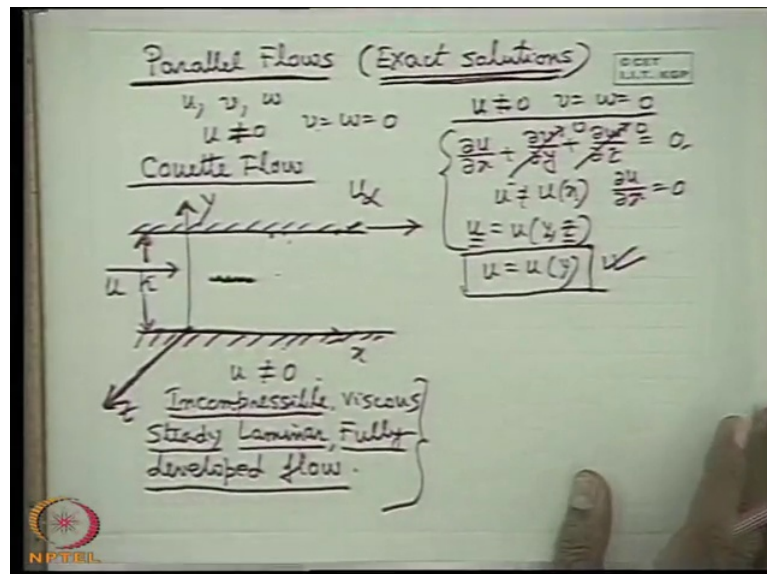 Parallel Flows (Exact solutions)
© CET
I.I.T. KGP
u, v, w
u ≠ 0   v = w = 0
Couette Flow
y
U∞
u
h
x
z
u ≠ 0
Incompressible, Viscous
Steady Laminar, Fully
developed flow.
u ≠ 0   v = w = 0
∂u/∂x + ∂v/∂y + ∂w/∂z = 0
0   0
u ≠ u(x)   ∂u/∂x = 0
u = u(y, z)
u = u(y)
NPTEL